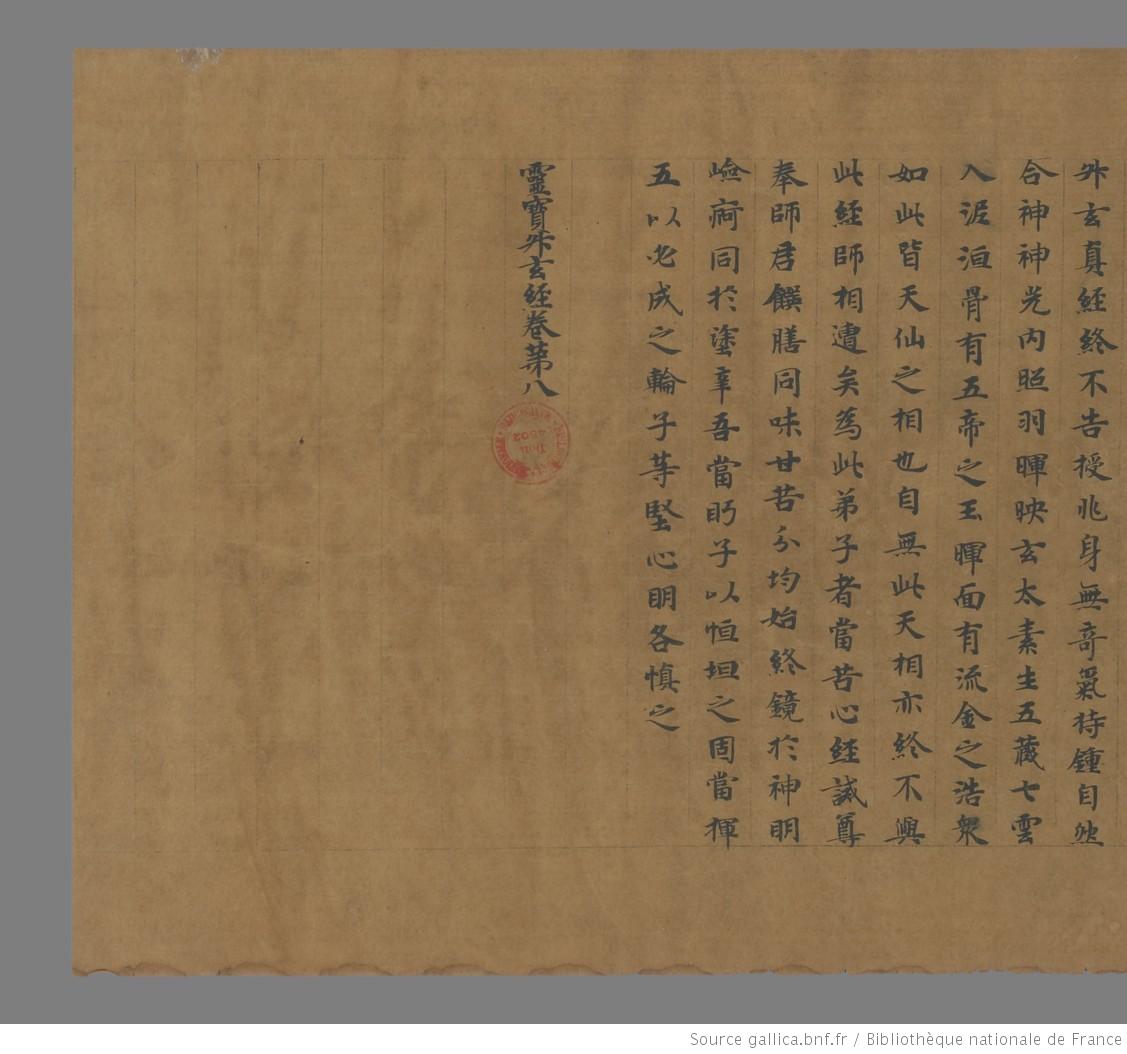 升玄真經終不告授兆身無奇氣待鍾自然
合神神光內照羽暉映玄太素生五藏七雲
入泥洹骨有五帝之玉暉面有流金之浩衆
如此皆天仙之相也自無此天相亦終不與
此經師相遭矣為此弟子者當苦心經誠尊
奉師君饌膳同味甘苦分均始終鏡於神明
嶮同於塗辛吾當眄子以恒坦之固當揮
五以必成之輪子等堅心明各慎之
靈寶升玄經卷苐八
4502
Source gallica.bnf.fr / Bibliothèque nationale de France